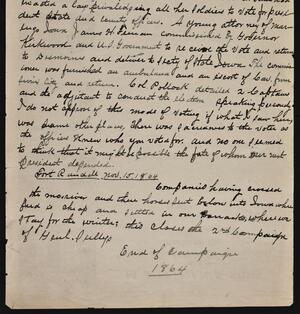 enacted a law priviledgeing all her Soldiers to vote for presi-
dent state and county offices. A young attorney of Maren-
go Iowa James H Feenan commissioned by Governor
Kirkwood and U.S Government to receive the vote and return
to Desmoines and deliver to Secty of State Iowa. The commis-
ioner was furnished an ambulance and an escort of Cav from
Sioux City and return. Col Pollock detailed 2 Captains
and the adjutant to conduct the election Speaking personaly
I do not approve of this mode of voting if what I saw here
was same other places. There was no secrecies to the vote as
the officers knew who you voted for and no one seemed
to think that it might be possible the fate of whom our next
President depended.
Fort Randall Nov. 15. 1864
Companies having crossed
the mosurie and their horses sent below into Iowa where
feed is cheap and settled in our barracks, where we
stay for the winter; this closes the 2nd Campaign
of Genl. Sullys
End of Campaign
1864